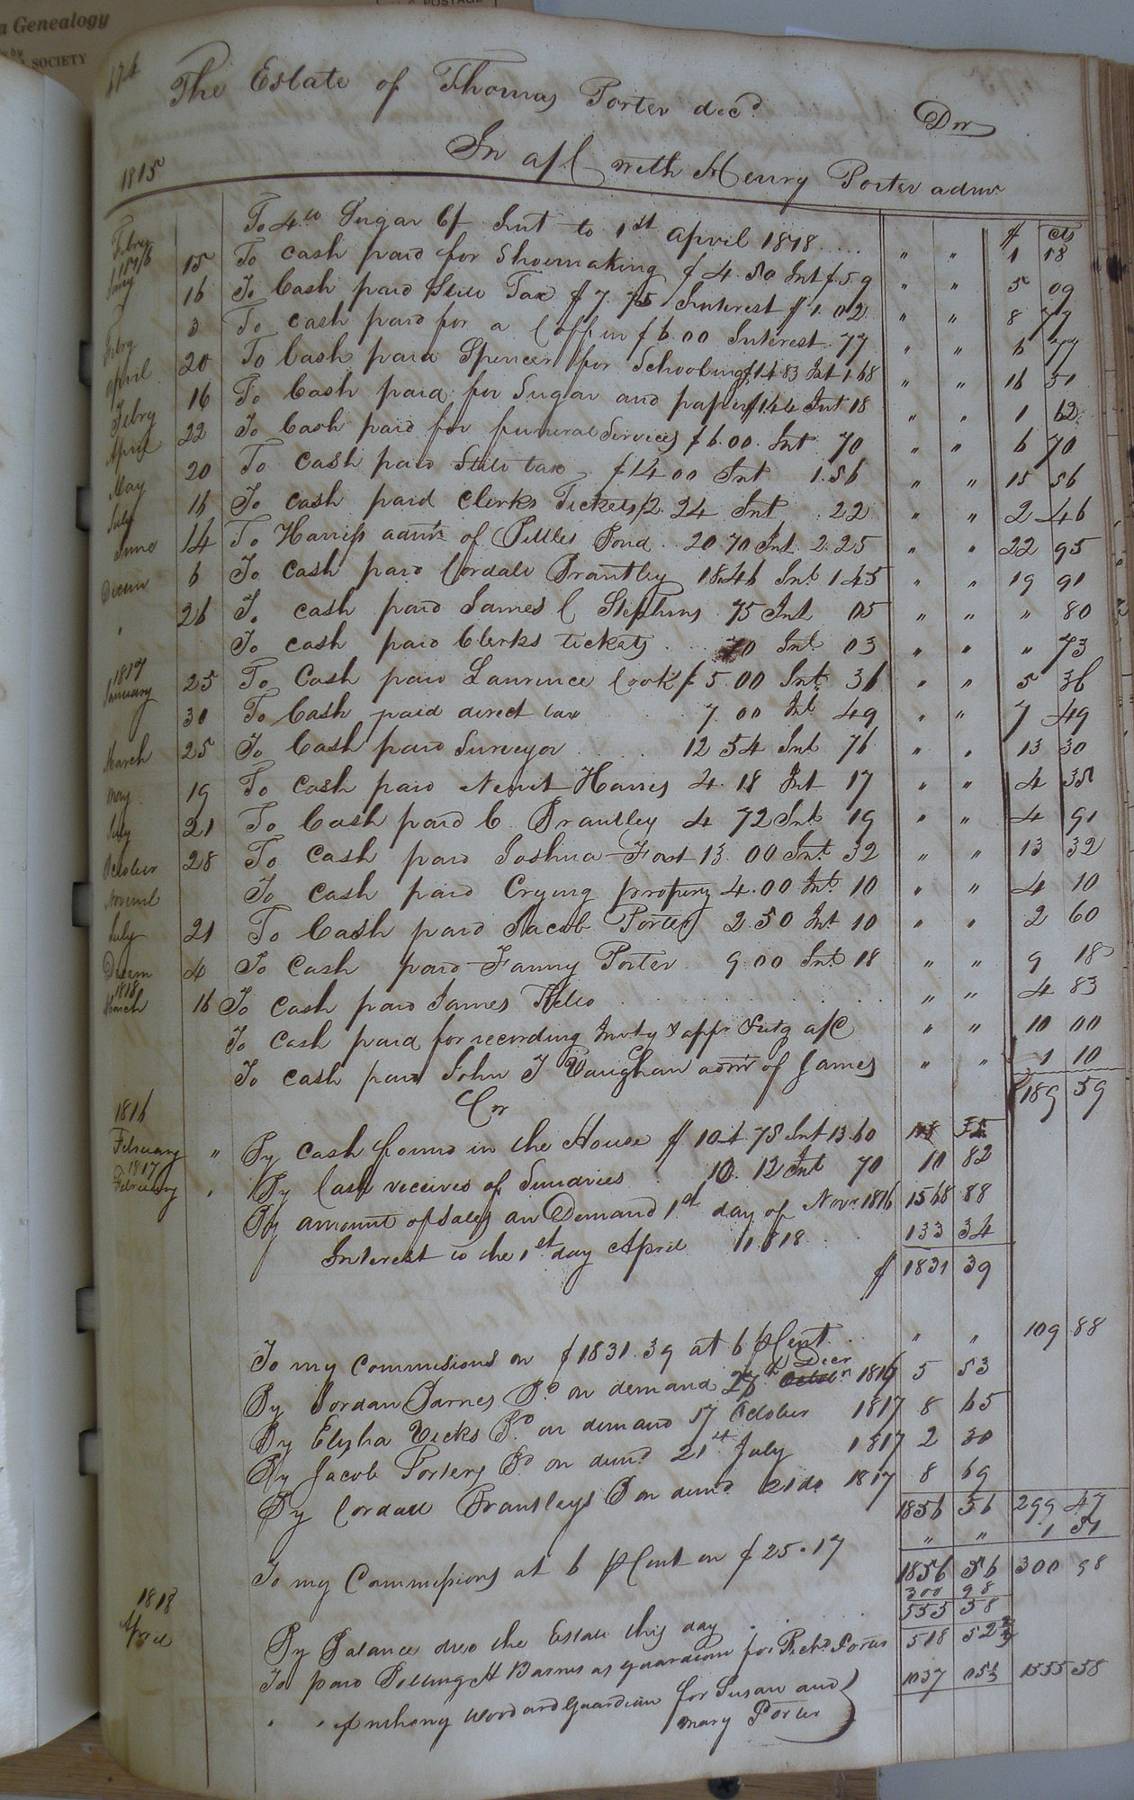 a Genealogy
SOCIETY
POSTAGE
174
The Estate of Thomas Porter decd. Dr
In a/c with Henry Porter admr
1815
$ cts
Febry To 4 lb Sugar 6/ Int to 1st April 1818 .... " " 1 18
1816 Jany 15 To cash paid for Shoemaking $4.50 Int $59 " " 5 09
16 To Cash paid State Tax $7.75 Interest $1.02 " " 8 77
Febry 3 To cash paid for a Coffin $6.00 Interest 77 " " 6 77
April 20 To Cash paid Spencer for Schooling $14 83 Int 1 68 " " 16 51
Febry 16 To Cash paid for Sugar and paper $1.44 Int 18 " " 1 62
April 22 To Cash paid for funeral Services $6.00 Int 70 " " 6 70
May 20 To cash paid State tax $14 00 Int 1.56 " " 15 56
July 16 To cash paid Clerks Tickets $2 24 Int .22 " " 2 46
June 14 To Harriss admr of Pittles Bond . 20 70 Int 2.25 " " 22 95
Decem 6 To cash paid Cordall Brantley 18.46 Int 1 45 " " 19 91
" 26 To cash paid James C Stephens 75 Int 05 " " " 80
To cash paid Clerks tickets .. 70 Int 03 " " " 73
1817 January 25 To Cash paid Laurence Cook $5.00 Int 36 " " 5 36
30 To Cash paid direct tax 7.00 Int 49 " " 7 49
March 25 To Cash paid Surveyor 12 54 Int 76 " " 13 30
May 19 To cash paid Newit Harris 4.18 Int 17 " " 4 35
July 21 To Cash paid C. Brantley 4 72 Int 19 " " 4 91
October 28 To cash paid Joshua Fort 13.00 Int 32 " " 13 32
Novemb To cash paid Crying property 4.00 Int 10 " " 4 10
July 21 To Cash paid Jacob Porter 2.50 Int 10 " " 2 60
Decem 4 To Cash paid Fanny Porter 9.00 Int 18 " " 9 18
1818 March 16 To cash paid James " " 4 83
To cash paid for recording Invty & appr a/c " " 10 00
To cash paid John T Vaughan admr of James " " 1 10
$189 59
Cr
1816 February " By cash found in the House $104.75 Int 13.60
1817 February " By Cash received of Sundries 10.12 Int 70 10 82
By amount of Sales on Demand 1st day of Novr 1816 1568 88
Interest to the 1st day April 1818 133 34
$ 1831 39
To my Commissions on $1831.39 at 6 pCent " " 109 88
By Jordan Barnes Bd on demand 26th Decr 1816 5 53
By Elisha Vicks Bd on demand 17 October 1817 8 65
By Jacob Porters Bd on demd 21st July 1817 2 30
By Cordall Brantleys B on demd 21 do 1817 8 69
1856 56 299 47
To my Commissions at 6 pCent on $25.17 " " 1 51
1856 56 300 98
300 98
1818 April
555 58
By Balance due the Estate this day
To paid H Barnes as guardian for Richd Porter 518 52
" " Anthony Woodard Guardian for Susan and 1037 05 1555 58
Mary Porter